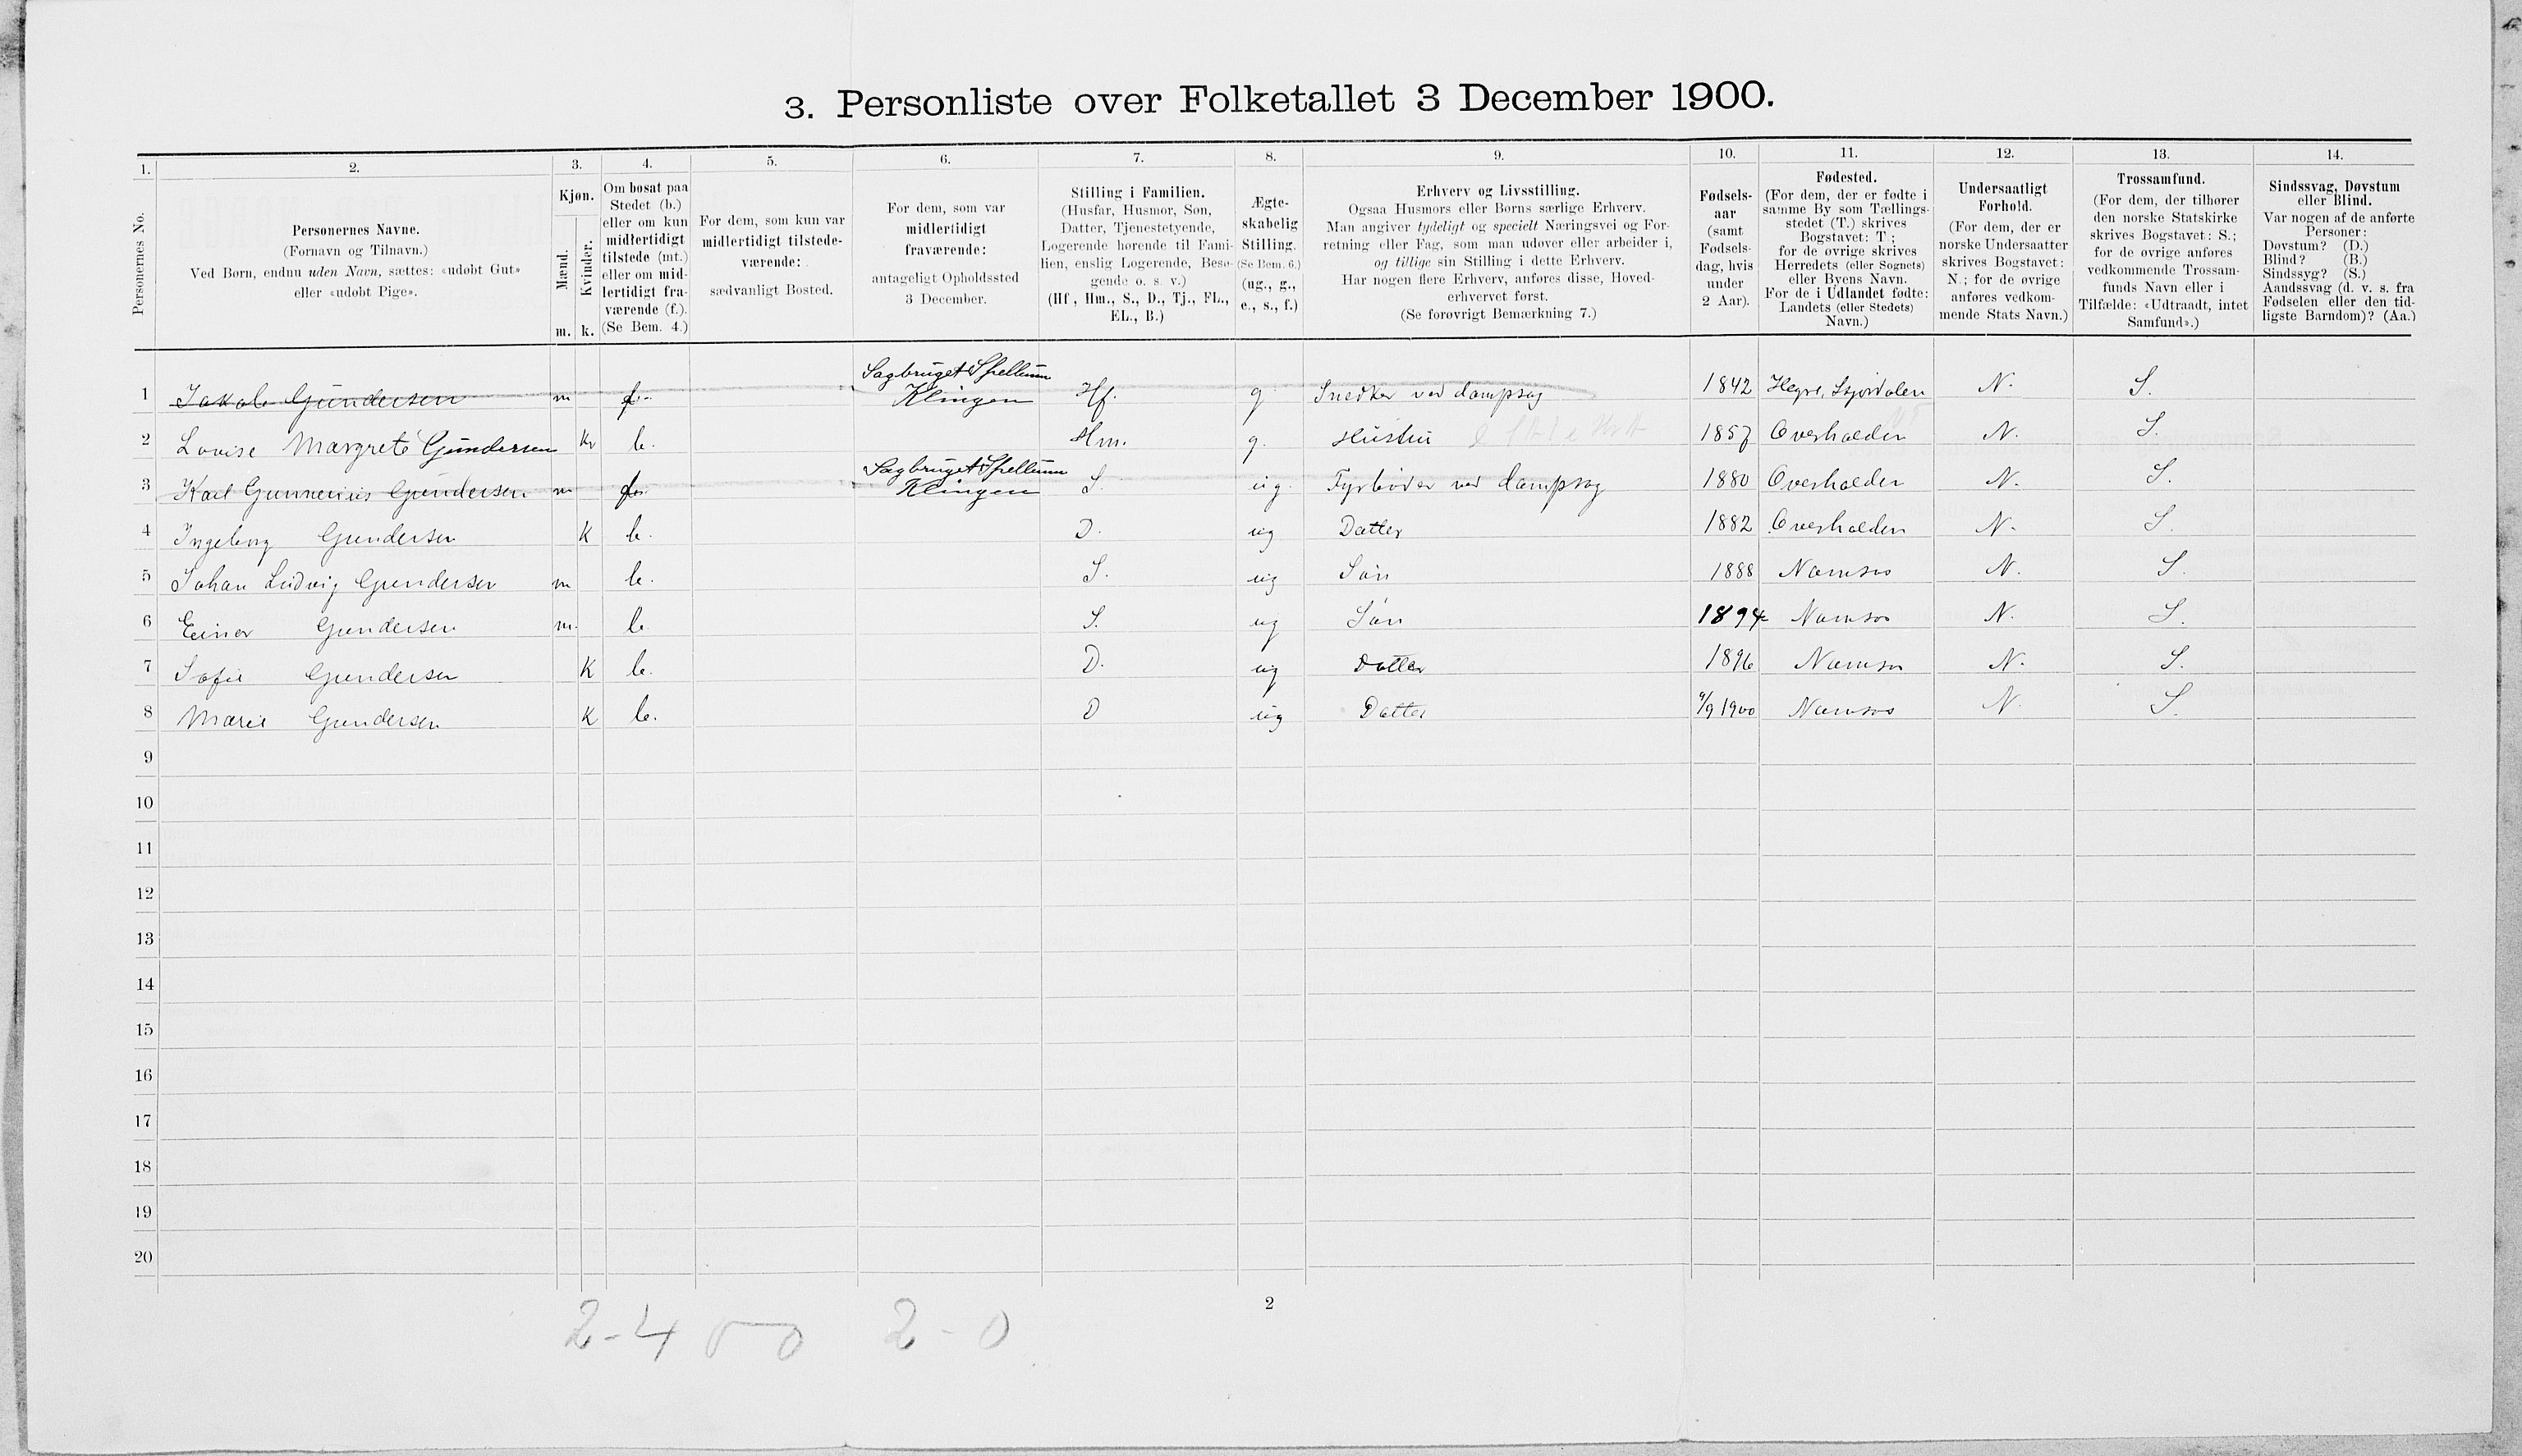 3. Personliste over Folketallet 3 December 1900.
1. 2. 3. 4. 5. 6. 7. 8. 9. 10. 11. 12. 13. 14.
Personernes No.
Personernes Navne.
(Fornavn og Tilnavn.)
Ved Børn, endnu uden Navn, sættes: «udøbt Gut»
eller «udøbt Pige».
Kjøn.
Mænd.
Kvinder.
m. k.
Om bosat paa
Stedet (b.)
eller om kun
midlertidigt
tilstede (mt.)
eller om mid-
lertidigt fra-
værende (f.).
(Se Bem. 4.)
For dem, som kun var
midlertidigt tilstede-
værende:
sædvanligt Bosted.
For dem, som var
midlertidigt
fraværende:
antageligt Opholdssted
3 December.
Stilling i Familien.
(Husfar, Husmor, Søn,
Datter, Tjenestetyende,
Logerende hørende til Fami-
lien, enslig Logerende, Besø-
gende o. s. v.)
(Hf, Hm., S., D., Tj., FL.,
EL., B.)
Ægte-
skabelig
Stilling.
(Se Bem. 6.)
(ug., g.,
e., s., f.)
Erhverv og Livsstilling.
Ogsaa Husmors eller Børns særlige Erhverv.
Man angiver tydeligt og specielt Næringsvei og For-
retning eller Fag, som man udøver eller arbeider i,
og tillige sin Stilling i dette Erhverv.
Har nogen flere Erhverv, anføres disse, Hoved-
erhvervet først.
(Se forøvrigt Bemærkning 7.)
Fødsels-
aar
(samt
Fødsels-
dag, hvis
under
2 Aar).
Fødested.
(For dem, der er fødte i
samme By som Tællings-
stedet (T.) skrives
Bogstavet: T;
for de øvrige skrives
Herredets (eller Sognets)
eller Byens Navn.
For de i Udlandet fødte:
Landets (eller Stedets)
Navn.)
Undersaatligt
Forhold.
(For dem, der er
norske Undersaatter
skrives Bogstavet:
N.; for de øvrige
anføres vedkom-
mende Stats Navn.)
Trossamfund.
(For dem, der tilhører
den norske Statskirke
skrives Bogstavet: S.;
for de øvrige anføres
vedkommende Trossam-
funds Navn eller i
Tilfælde: «Udtraadt, intet
Samfund».)
Sindssvag, Døvstum
eller Blind.
Var nogen af de anførte
Personer:
Døvstum? (D.)
Blind? (B.)
Sindssyg? (S.)
Aandssvag (d. v. s. fra
Fødselen eller den tid-
ligste Barndom)? (Aa.)
Sagbruget Spellum
1 Jakob Gundersen m f. Klingen Hf. g. Snedker ved dampsag 1842 Hegre, Stjørdalen N. S.
2 Lovise Margrete Gundersen k b. Hm. g. Hustru 1857 Overhalden N. S.
Sagbruget Spellum
3 Karl Gunnerius Gundersen m f. Klingen S. ug. Fyrbøder ved dampsag 1880 Overhalden N. S.
4 Ingeborg Gundersen K b. D. ug Datter 1882 Overhalden N. S.
5 Johan Ludvig Gundersen m b. S. ug Søn 1888 Namsos N. S.
6 Einar Gundersen m. b. S. ug Søn 1894 Namsos N. S.
7 Sofie Gundersen K b. D. ug Datter 1896 Namsos N. S.
8 Marie Gundersen K b. D ug Datter 9/9 1900 Namsos N. S.
9
10
11
12
13
14
15
16
17
18
19
20
2
2-4 0-0 2-0